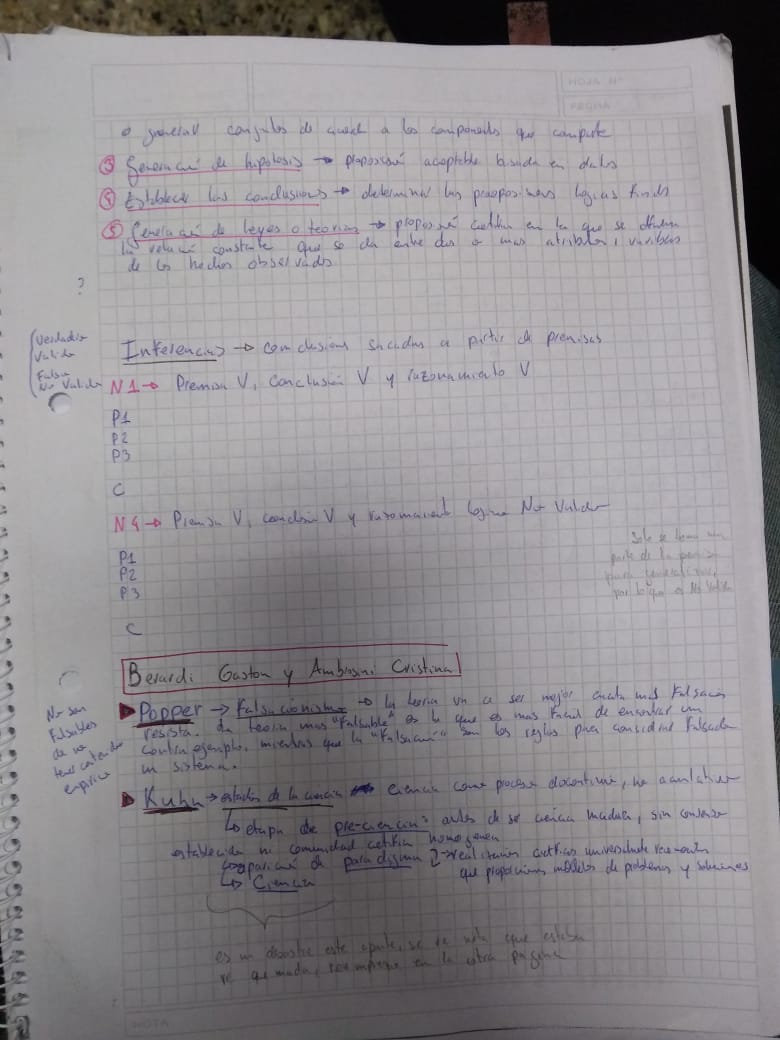 HOJA Nº
FECHA
o general conjuntos de a los componentes que comparte
③ Generación de hipotesis → proposición aceptable basada en datos
④ Establecer las conclusiones → determinar las proposiciones logicas finales
⑤ Generación de leyes o teorias → proposición en la que se
la relación constante que se da entre dos o mas atributos, variables
de los hechos observados
?
Verdadero
Valido
Falso
No Valido
Inferencias → conclusiones sacadas a partir de premisas
N1 → Premisa V, Conclusión V y razonamiento V
P1
P2
P3
C
N4 → Premisa V, conclusión V y razonamiento logico No Valido
P1
P2
P3
C
Solo se toma una
parte de la
para generalizar,
por lo que es No Valido
Berardi Gaston y Ambrosini Cristina
No son
Falsables
de no
tener contenido
empirico
Popper → Falsacionismo → la teoria va a ser mejor cuanta mas Falsación
resista. La teoria mas "Falsable" es la que es mas facil de encontrar un
contraejemplo, mientras que la "Falsación" son las reglas para considerar Falsada
un sistema.
Kuhn → estadios de la ciencia ciencia como proceso discontinuo, no acumulativo
↳ etapa de pre-ciencia: antes de ser ciencia madura, sin consenso
establecido ni comunidad cetifica homogenea
↳ aparición de paradigma → realizaciones cietificas universalmente reconocidas
que proporcionan modelos de problemas y soluciones
↳ Ciencia
es un desastre este apunte, se re nota que estaba
re quemada, reempieze en la otra pagina
NOTA